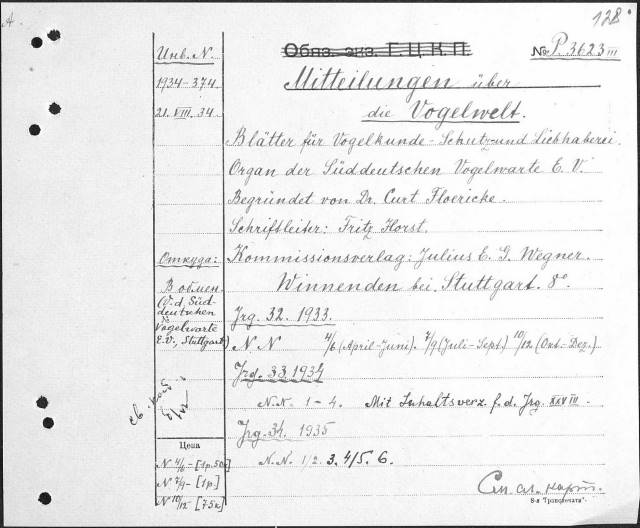 128
А
Обяз. экз. Г.Ц.К.П.
№ P.3623 III
Инв. N.
1934-374
21.VIII.34.
Mitteilungen über
die Vogelwelt.
Blätter für Vogelkunde-Schutz und Liebhaberei.
Organ der Süddeutschen Vogelwarte E.V.
Begründet von Dr. Curt Floericke.
Schriftleiter: Fritz Horst.
Kommissionsverlag: Julius E. G. Wegner.
Winnenden bei Stuttgart. 8°
Откуда:
В обмен.
(v.d. Süd-
deutschen
Vogelwarte
E.V., Stuttgart)
Jrg. 32. 1933.
N N 4/6 (April-Juni). 7/9 (Juli-Sept.) 10/12 (Okt-Dez.)
Jrg. 33. 1934
N.N. 1-4. Mit Inhaltsverz. f. d. Jrg. XXVIII.
Jrg. 34. 1935
N.N. 1/2. 3. 4/5. 6.
Цена
N 4/6 - [1р.50к]
N 7/9 - [1р.]
N 10/12 [75к]
См. сл. карт.
8-я "Транспечати".